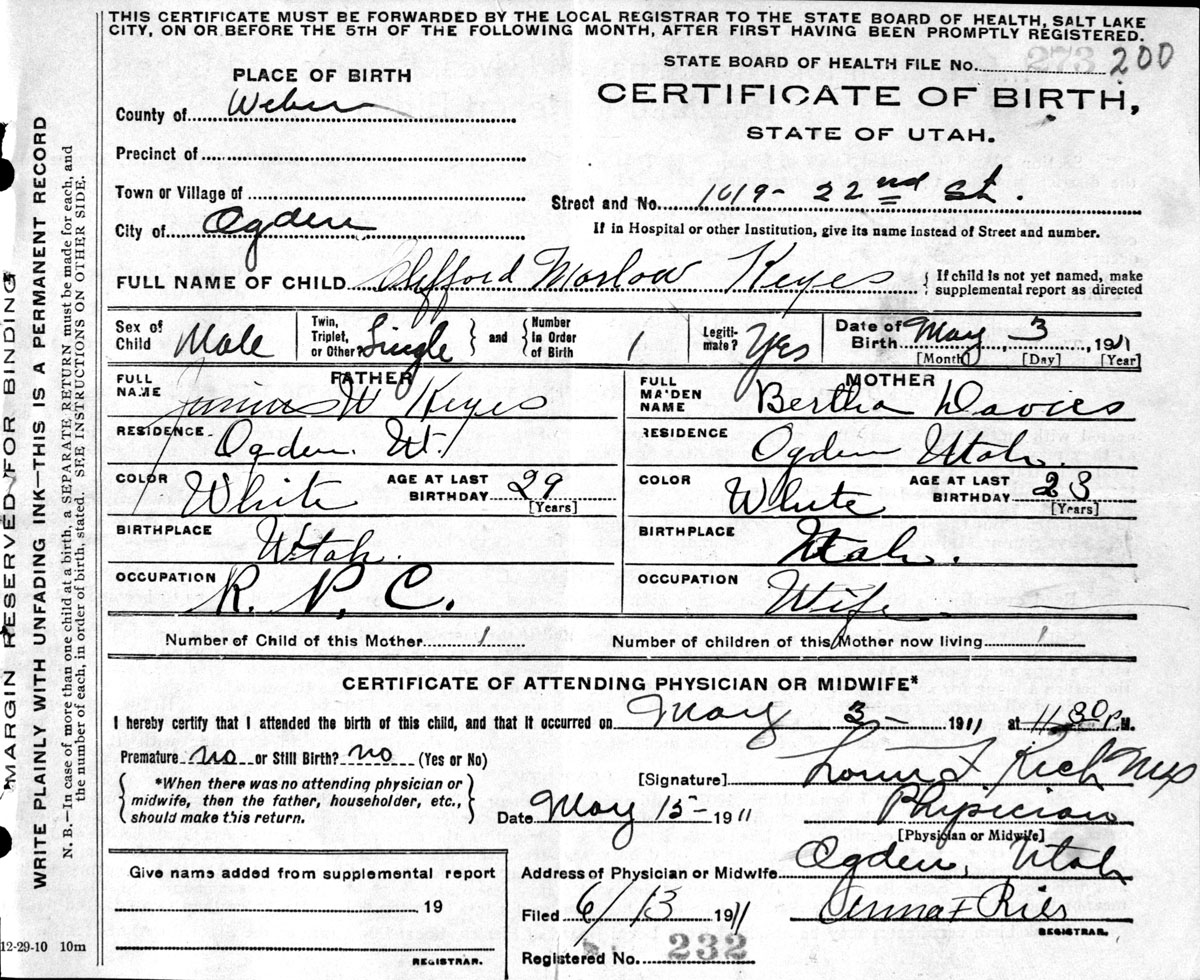 THIS CERTIFICATE MUST BE FORWARDED BY THE LOCAL REGISTRAR TO THE STATE BOARD OF HEALTH, SALT LAKE
CITY, ON OR BEFORE THE 5TH OF THE FOLLOWING MONTH, AFTER FIRST HAVING BEEN PROMPTLY REGISTERED.
MARGIN RESERVED FOR BINDING
WRITE PLAINLY WITH UNFADING INK—THIS IS A PERMANENT RECORD
N. B.—In case of more than one child at a birth, a SEPARATE RETURN must be made for each, and
the number of each, in order of birth, stated. SEE INSTRUCTIONS ON OTHER SIDE.
STATE BOARD OF HEALTH FILE No. 273 200
PLACE OF BIRTH
CERTIFICATE OF BIRTH,
STATE OF UTAH.
County of Weber
Precinct of
Town or Village of
Street and No. 1019 - 22nd St.
City of Ogden
If in Hospital or other Institution, give its name instead of Street and number.
FULL NAME OF CHILD Clifford Marlow Keyes { If child is not yet named, make supplemental report as directed
Sex of Child Male Twin, Triplet, or Other? Single } and { Number In Order of Birth 1 Legitimate? Yes Date of Birth May 3, 1911
[Month] [Day] [Year]
FATHER MOTHER
FULL NAME Junius W Keyes FULL MAIDEN NAME Bertha Davies
RESIDENCE Ogden Ut. RESIDENCE Ogden Utah.
COLOR White AGE AT LAST BIRTHDAY 29 [Years] COLOR White AGE AT LAST BIRTHDAY 23 [Years]
BIRTHPLACE Utah. BIRTHPLACE Utah.
OCCUPATION R. P. C. OCCUPATION Wife
Number of Child of this Mother 1 Number of children of this Mother now living 1
CERTIFICATE OF ATTENDING PHYSICIAN OR MIDWIFE*
I hereby certify that I attended the birth of this child, and that it occurred on May 3- 1911 at 11 30 P.M.
Premature no or Still Birth? no (Yes or No)
{ *When there was no attending physician or midwife, then the father, householder, etc., should make this return. }
[Signature] Rich
Date May 15- 1911 Physician
[Physician or Midwife]
Address of Physician or Midwife Ogden, Utah
Give name added from supplemental report
19
REGISTRAR.
Filed 6/13 1911 Anna F Ries
REGISTRAR.
Registered No. 232
12-29-10 10m